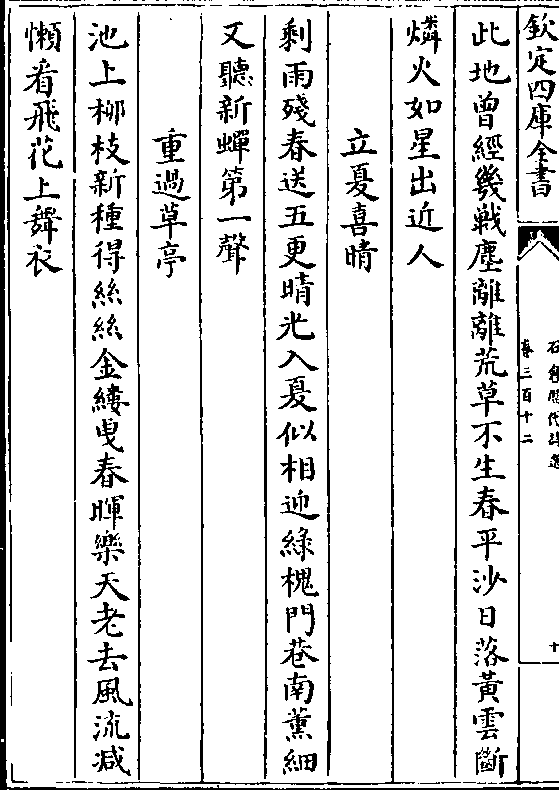 欽定四庫全書
石倉歷代詩選
卷三百十二
十
此地曾經幾戰塵離離荒草不生春平沙日落黃雲斷
燐火如星出近人
立夏喜晴
剩雨殘春送五更晴光入夏似相迎綠槐門巷南薰細
又聽新蟬第一聲
重過草亭
池上柳枝新種得絲絲金縷曳春暉樂天老去風流減
懶看飛花上舞衣